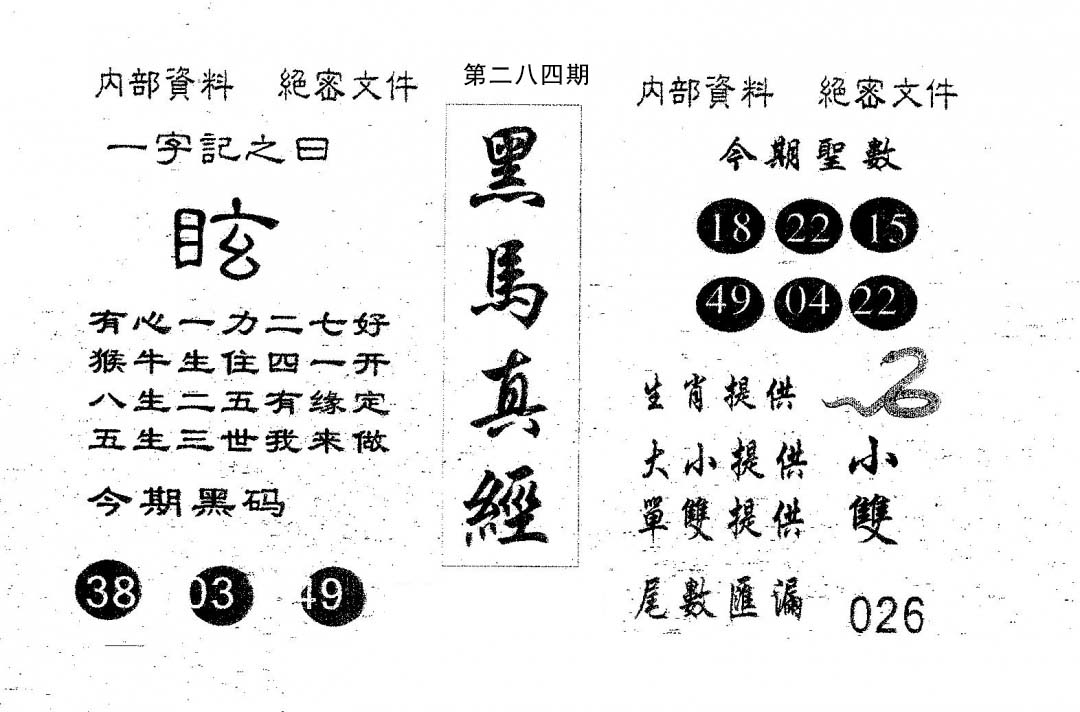 第二八四期
內部資料 絕密文件
一字記之曰
眩
有心一力二七好
猴牛生住四一开
八生二五有缘定
五生三世我来做
今期黑码
38 03 49
黑馬真經
內部資料 絕密文件
今期聖數
18 22 15
49 04 22
生肖提供
大小提供 小
單雙提供 雙
尾數匯漏 026